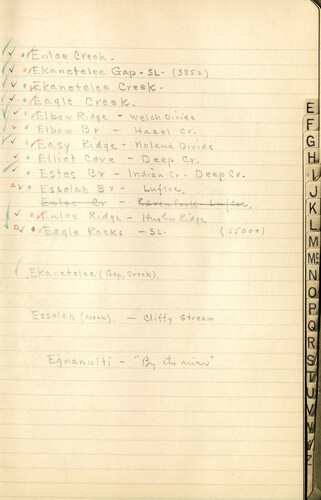 Enloe Creek.
Ekanetelee Gap - SL - (3852)
Ekanetelee Creek -
Eagle Creek.
Elbow Ridge - Welch Divide
Elbow Br - Hazel Cr.
Easy Ridge - Noland Divide
Elliot Cove - Deep Cr.
Estes Br - Indian Cr - Deep Cr.
Essolah Br - Luftee.
Enloe Cr - Raven Fork - Luftee.
Enloe Ridge - Hughes Ridge
Eagle Rocks - SL - (5500+)
Ekanetelee (Gap, Creek).
Essolah (Creek). - Cliffy Stream
Eqwanulti - "By the river"
E
F
G
H
I
J
K
L
M
Mc
N
O
P
Q
R
S
T
U
V
W
Y
Z